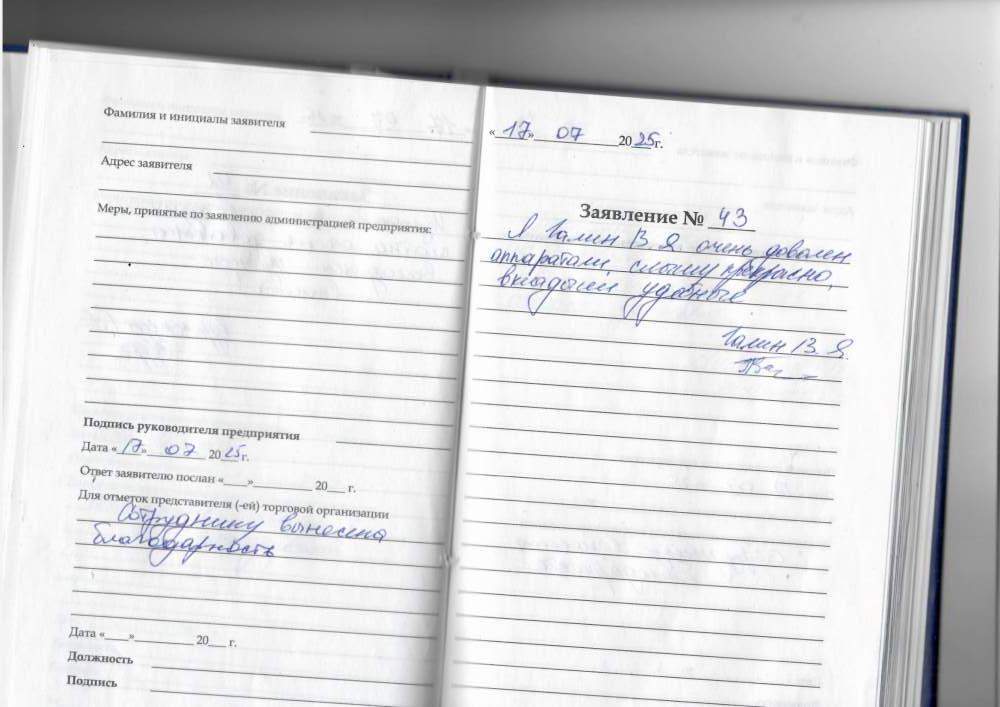 Фамилия и инициалы заявителя
Адрес заявителя
Меры, принятые по заявлению администрацией предприятия:
Подпись руководителя предприятия
Дата «17» 07 2025 г.
Ответ заявителю послан «____»__________ 20___ г.
Для отметок представителя (-ей) торговой организации
Сотруднику вынесена
благодарность
Дата «____»__________ 20___ г.
Должность
Подпись
«17» 07 2025 г.
Заявление № 43
Я Галин В. Я. очень доволен
аппаратами, слышу прекрасно,
вкладыши удобные
Галин В. Я.